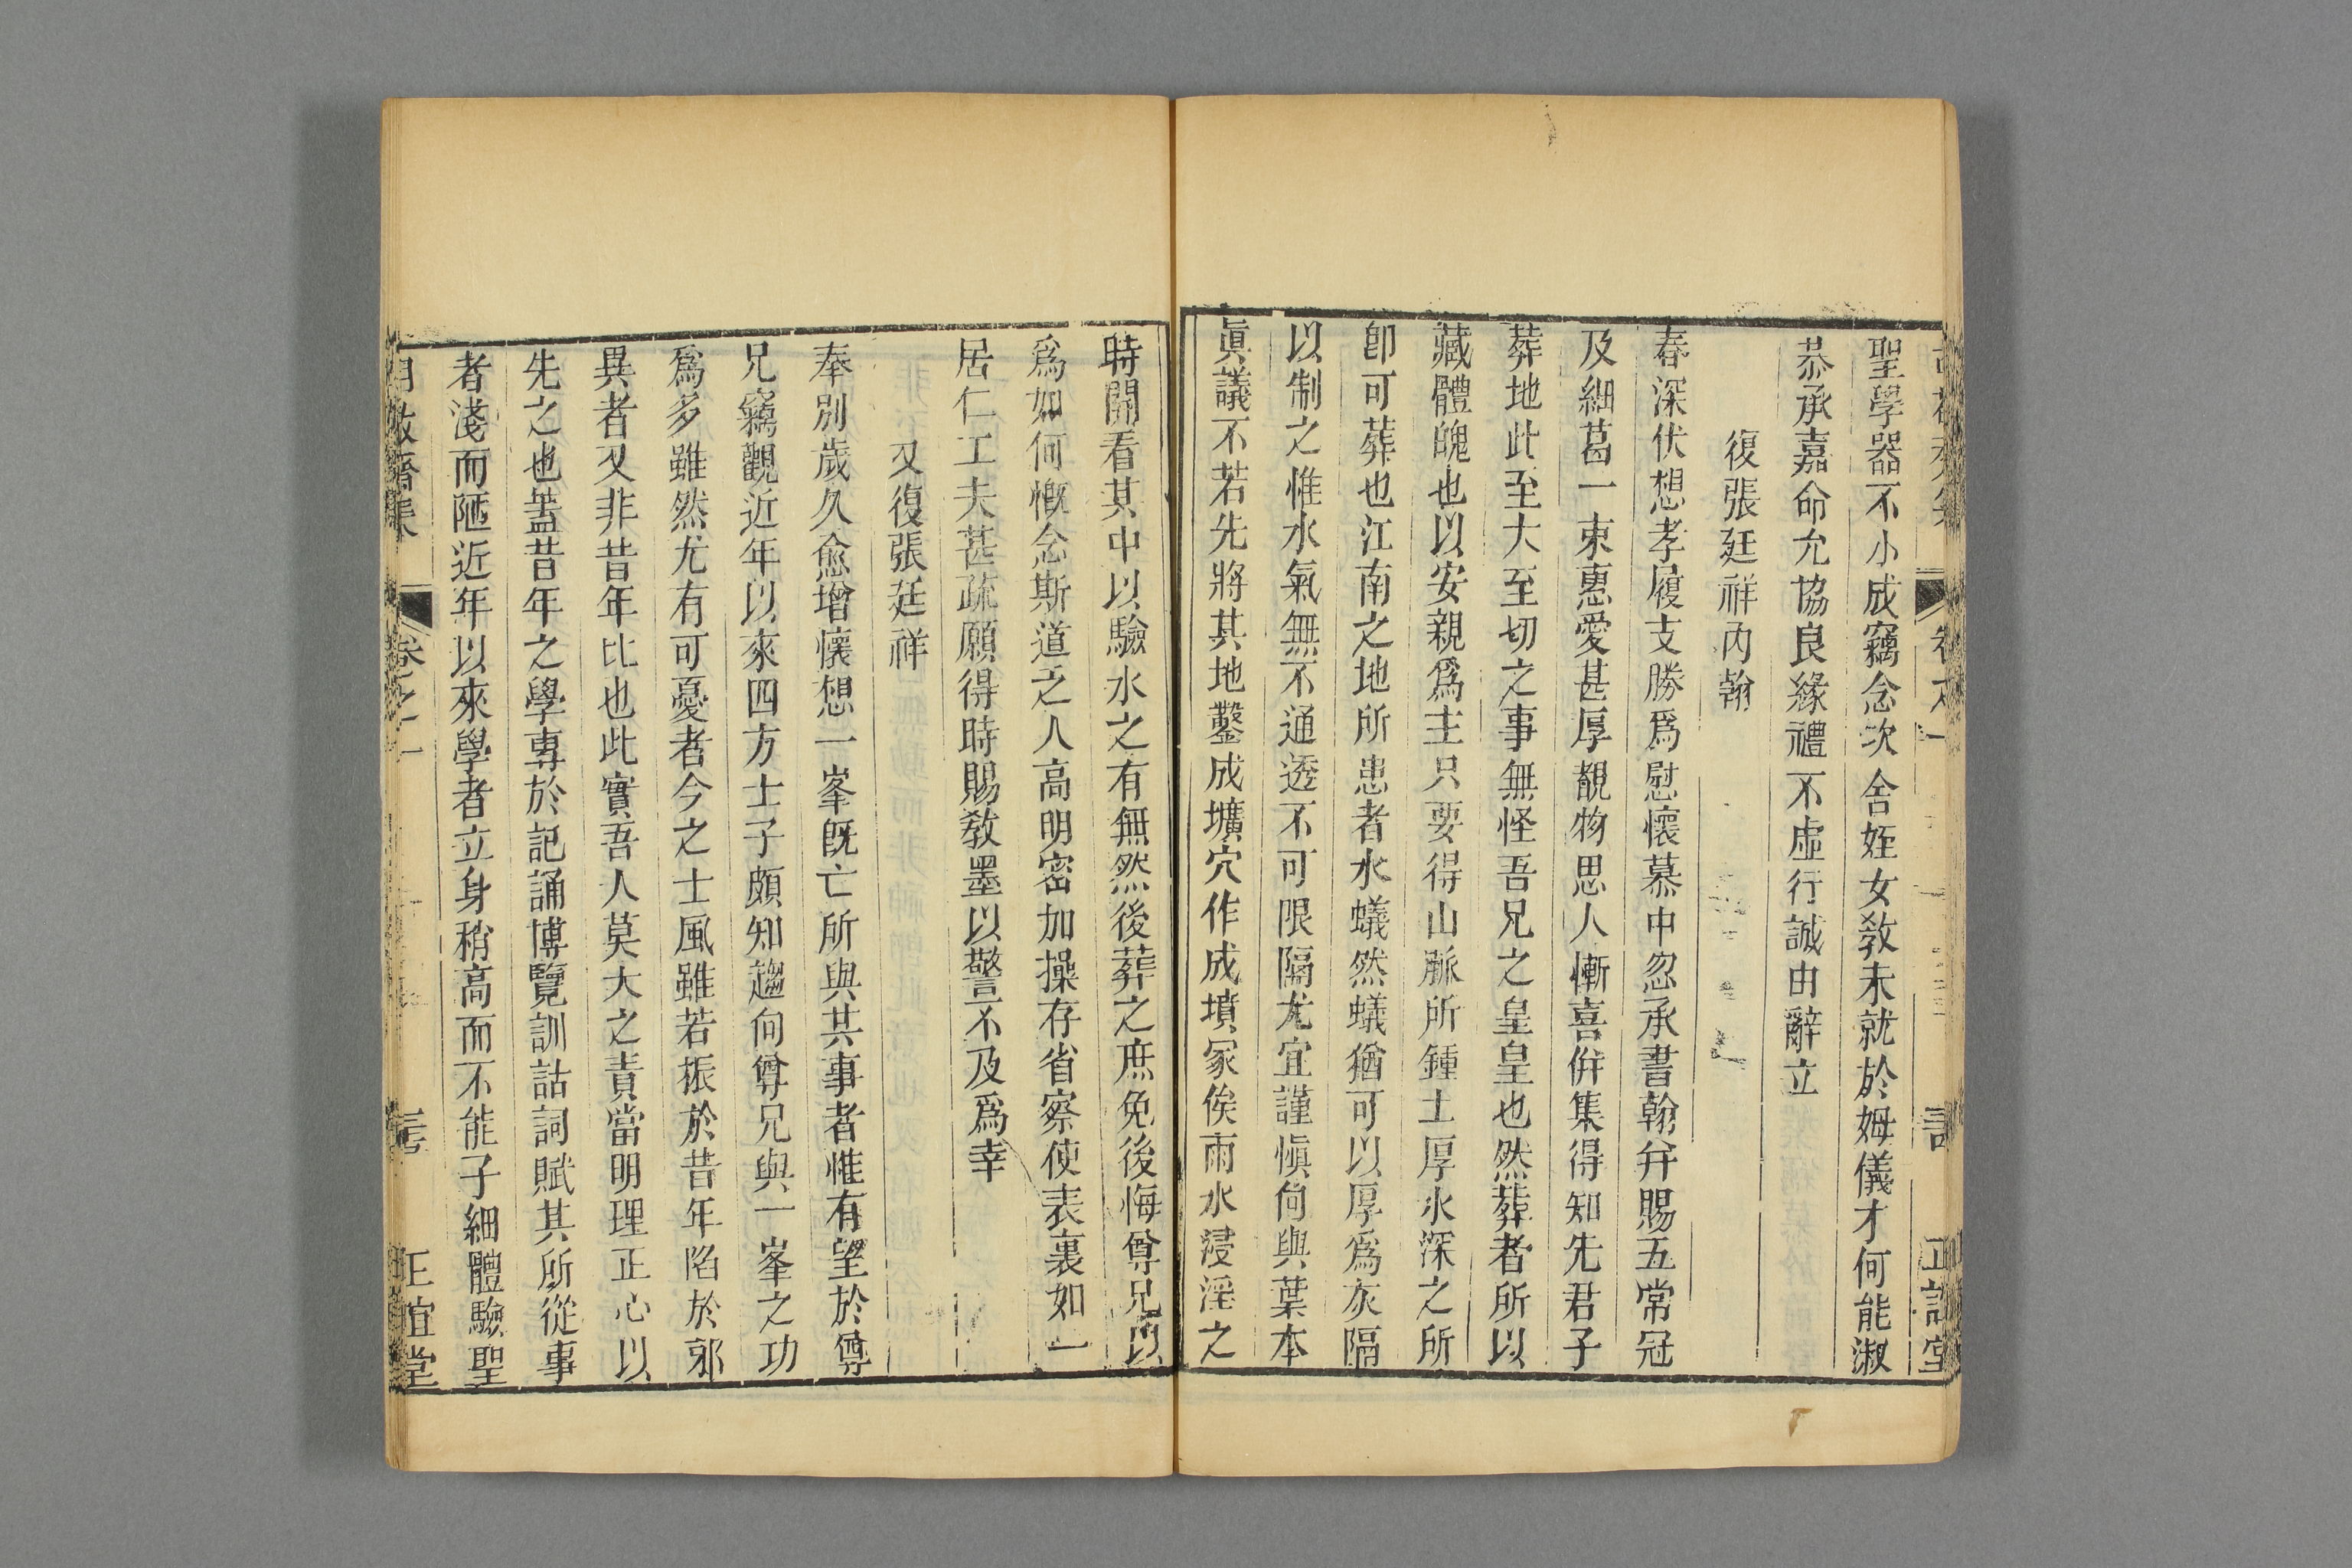 聖學器不小成竊念次舍姪女敎未就於姆儀才何能淑
恭承嘉命允協良緣禮不虛行誠由辭立
復張廷祥內翰
春深伏想孝履支勝爲慰懷慕中忽承書翰幷賜五常冠
及細葛一束惠愛甚厚覩物思人慚喜倂集得知先君子
葬地此至大至切之事無怪吾兄之皇皇也然葬者所以
藏體魄也以安親爲主只要得山脈所鍾土厚水深之所
卽可葬也江南之地所患者水蟻然蟻猶可以厚爲灰隔
以制之惟水氣無不通透不可限隔尤宜謹愼向與葉本
眞議不若先將其地鑿成壙穴作成墳冢俟雨水浸淫之
時開看其中以驗水之有無然後葬之庶免後悔尊兄以
爲如何慨念斯道之人高明密加操存省察使表裏如一
居仁工夫甚疏願得時賜敎墨以警不及爲幸
又復張廷祥
奉別歲久愈增懷想一峯旣亡所與共事者惟有望於尊
兄竊觀近年以來四方士子頗知趨向尊兄與一峯之功
爲多雖然尤有可憂者今之士風雖若振於昔年陷於邪
異者又非昔年比也此實吾人莫大之責當明理正心以
先之也蓋昔年之學專於記誦博覽訓詁詞賦其所從事
者淺而陋近年以來學者立身稍高而不能子細體驗聖
胡敬齋集 卷之二 正誼堂